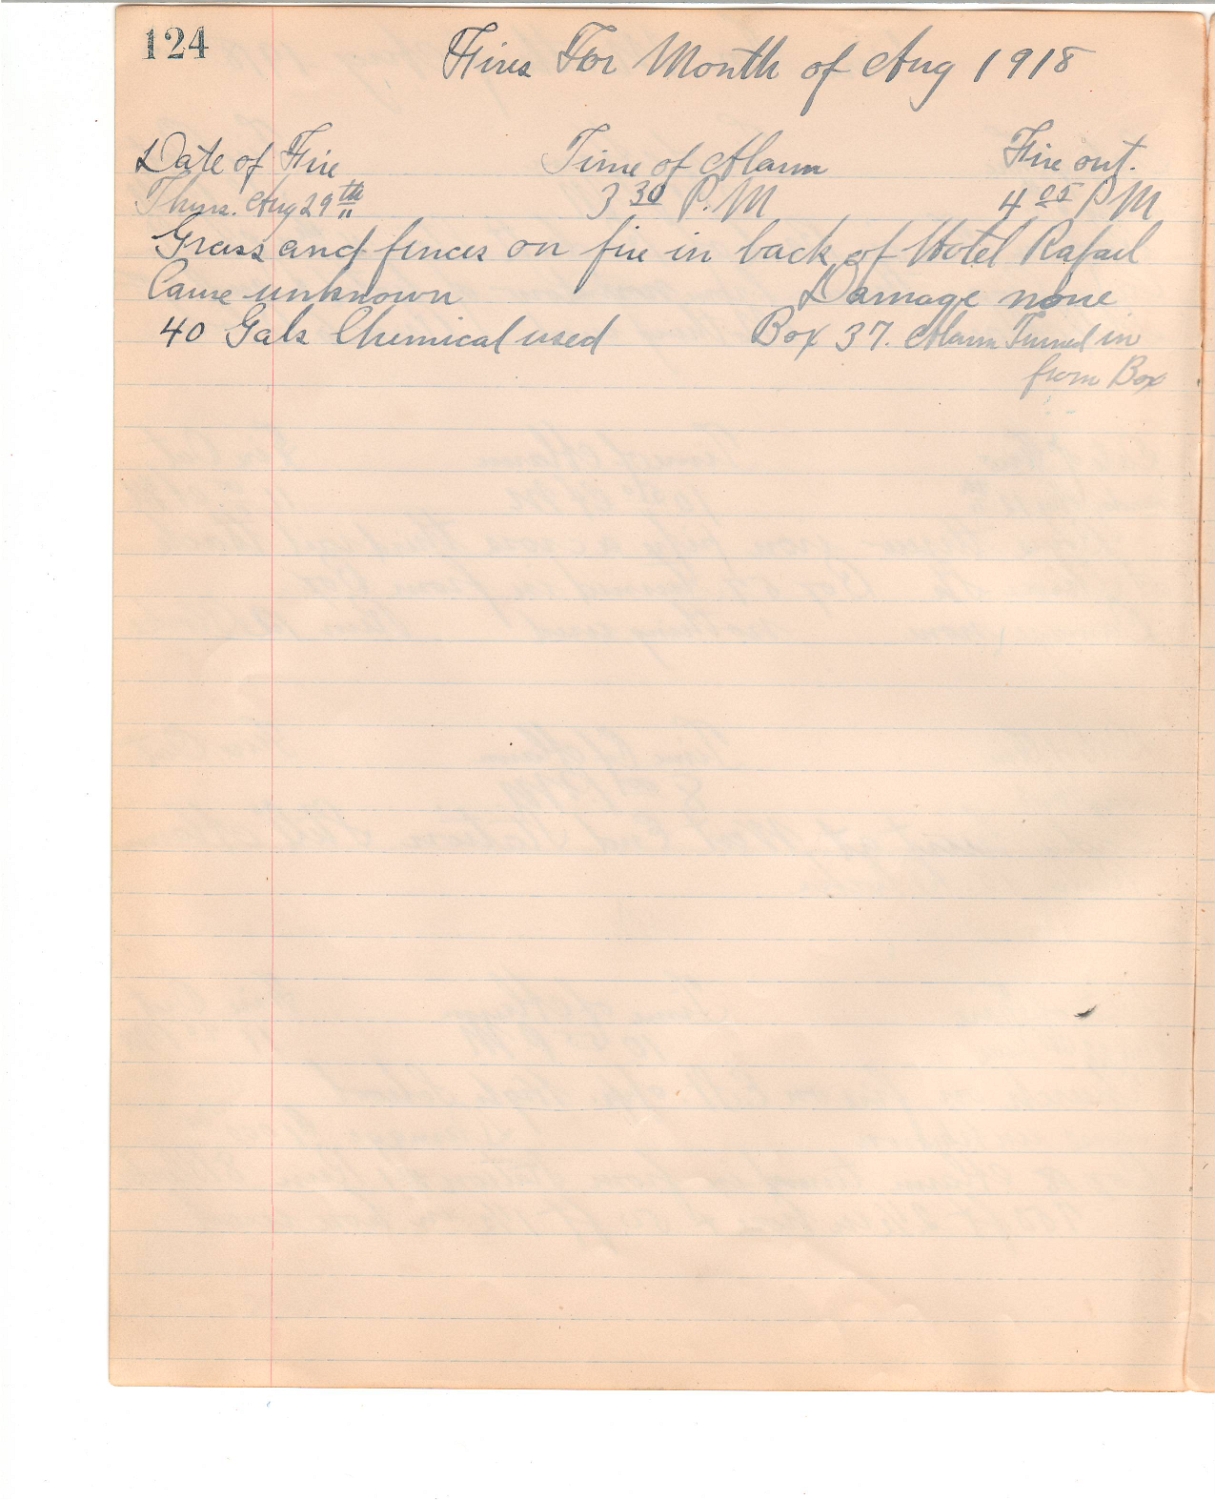 124
Fires For Month of Aug 1918
Date of Fire Time of Alarm Fire out.
Thurs. Aug 29th 3 30 P.M 4 05 P M
Grass and fences on fire in back of Hotel Rafael
Cause unknown Damage none
40 Gals Chemical used Box 37. Alarm Turned in
from Box